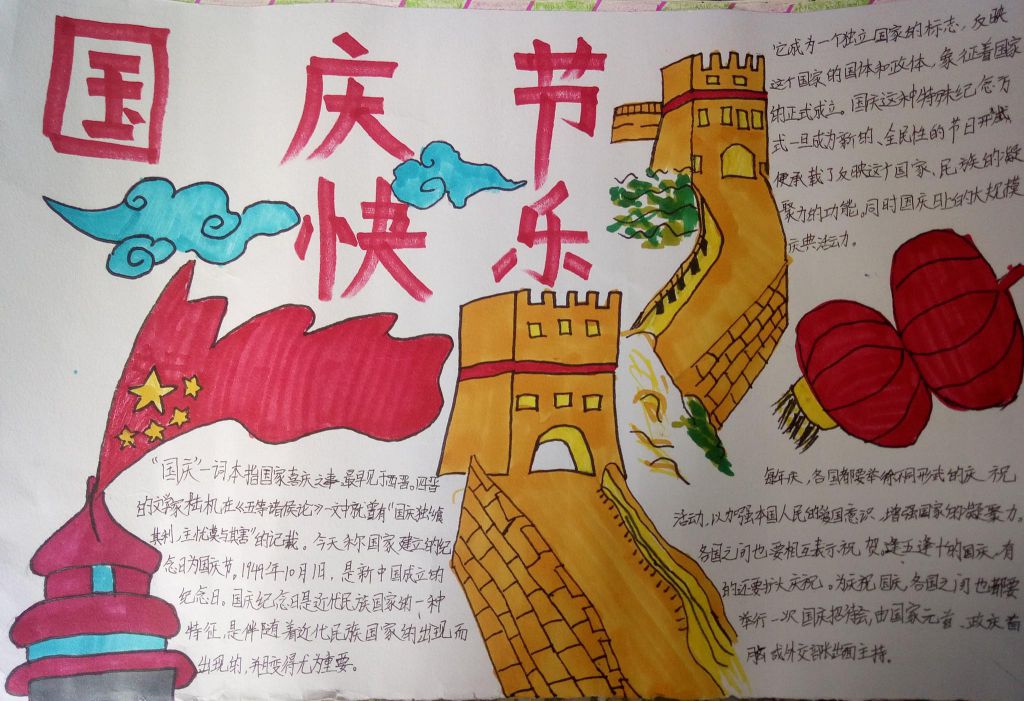 国庆节
快乐
它成为一个独立国家的标志，反映
这个国家的国体和政体，象征着国家
的正式成立。国庆这种特殊纪念方
式一旦成为新的、全民性的节日形式
便承载了反映这个国家、民族的凝
聚力的功能。同时国庆日上的大规模
庆典活动。
“国庆”一词本指国家喜庆之事 最早见于西晋。西晋
的文学家陆机在《五等诸侯论》一文中就曾有“国庆独飨
其利，主忧莫与其害”的记载。今天称国家建立的纪
念日为国庆节。1949年10月1日，是新中国成立的
纪念日。国庆纪念日是近代民族国家的一种
特征，是伴随着近代民族国家的出现而
出现的，并且变得尤为重要。
每年庆，各国都要举 不同形式的庆 祝
活动，以加强本国人民的爱国意识，增强国家的凝聚力。
各国之间也要相互表示祝 贺。逢五逢十的国庆，有
的还要扩大庆祝。为庆祝国庆，各国之间也都要
举行一次国庆招待会，由国家元首、政 首
或外交 出面主持。